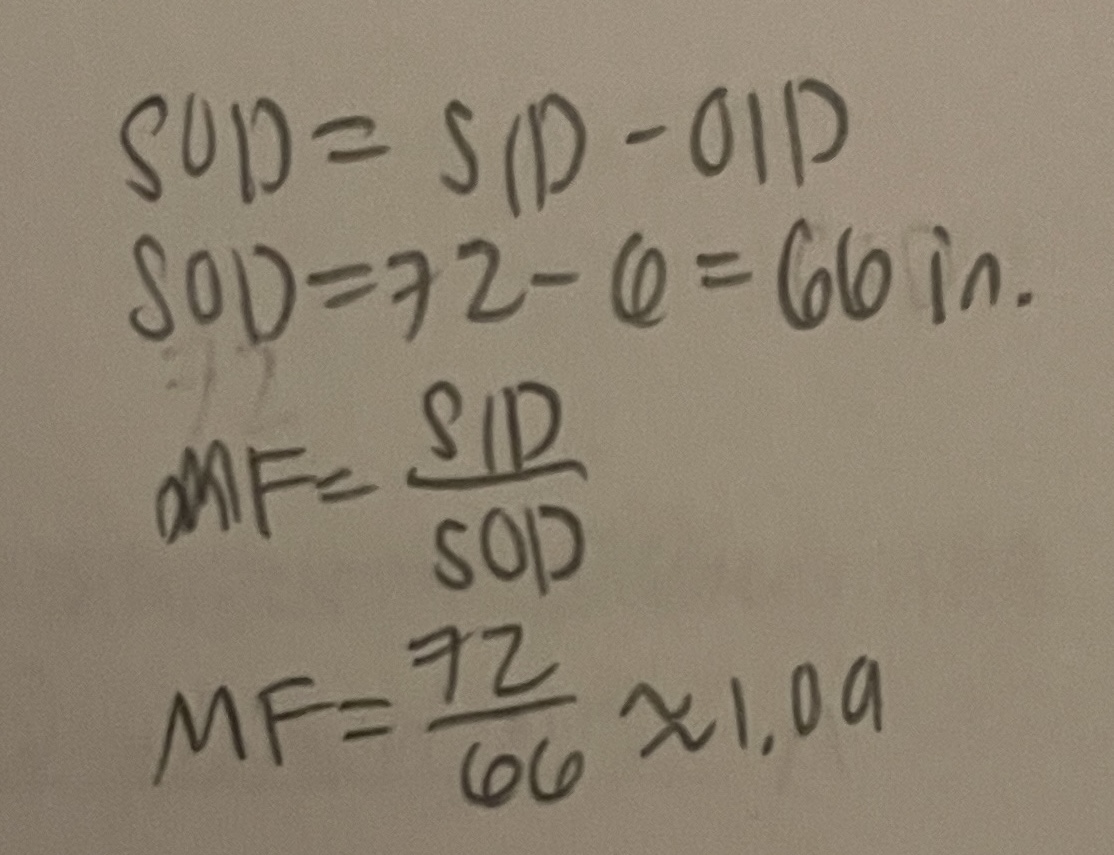 SOD = SID - OID
SOD = 72 - 6 = 66 in.
MF = SID/SOD
MF = 72/66 ≈ 1.09